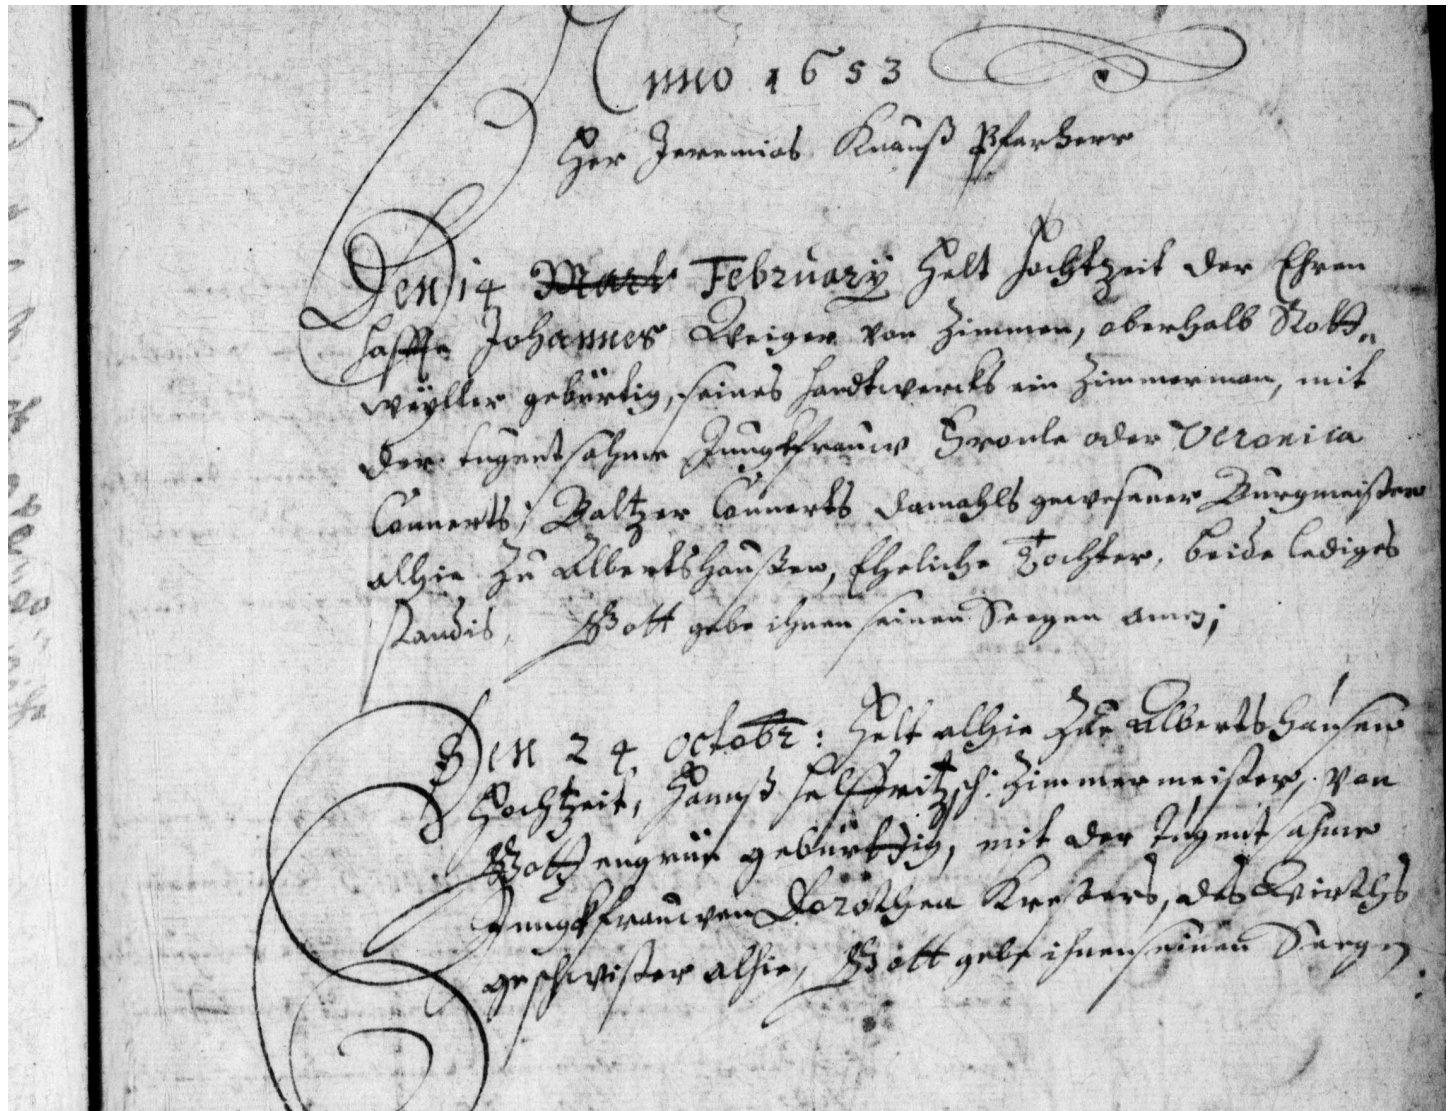 Anno 1653
Her Jeremias Knauß Pfarherr
Den 14 Mart February helt hochtzeit der Ehren
haffte Johannes Weiger von Zimmen, oberhalb Rott„
weyller gebürtig, seines handtwercks ein Zimmerman, mit
der tugentsahme Jungkfrauw Fronle oder Veronica
Connerts, Baltzer Connerts damahls gewesener Burgmeister
alhie Zu Albertshaußen, Eheliche Tochter, beide lediges
standis, Gott gebe ihnen seinen Seegen amen;
Den 24 octobr: helt alhie Zue Albertshausen
Hochtzeit, Hannß Helffritzsch: Zimmermeister, von
Gottengrün gebürttig, mit der tugentsahme
Jungkfrauwen Dorothea Kresters, des Wirths
geschwister alhie, Gott gebe ihnen seinen Seegen